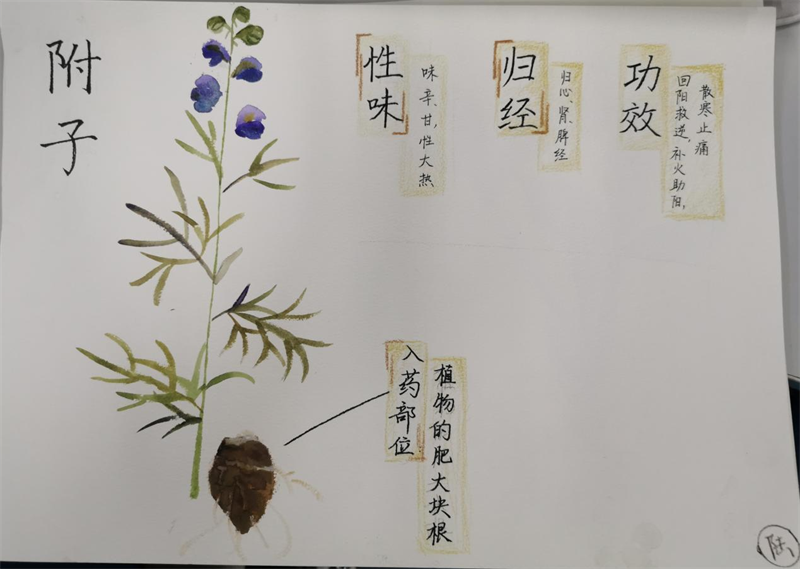 附子
性味
味辛、甘，性大热
归经
归心、肾、脾经
功效
回阳救逆，补火助阳，
散寒止痛
入药部位
植物的肥大块根